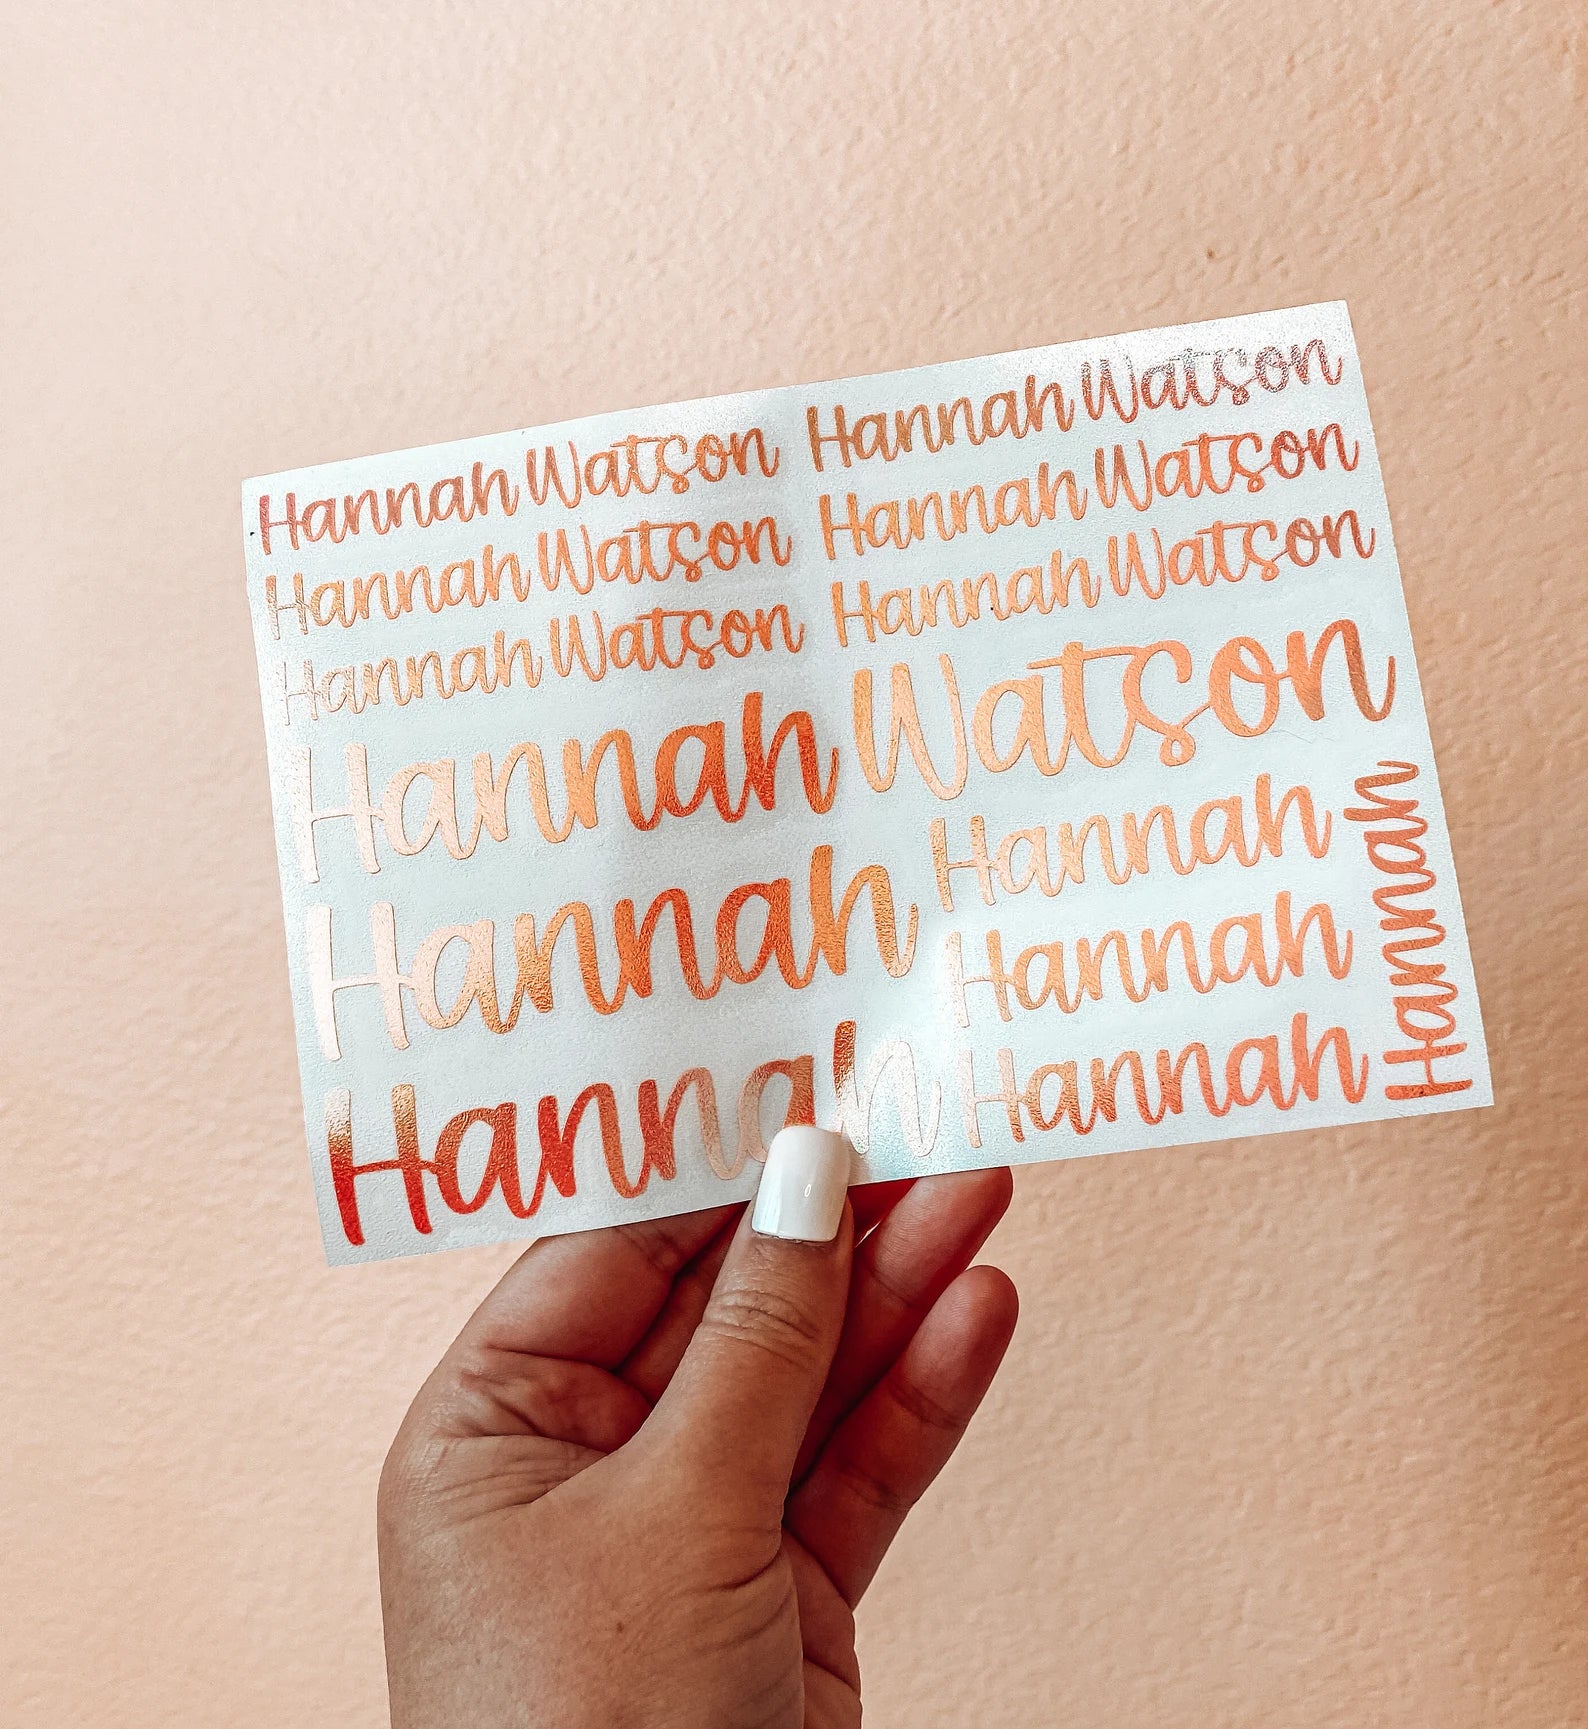 Hannah Watson
Hannah Watson
Hannah Watson
Hannah Watson
Hannah Watson
Hannah Watson
Hannah Watson
Hannah
Hannah
Hannah
Hannah
Hannah
Hannah